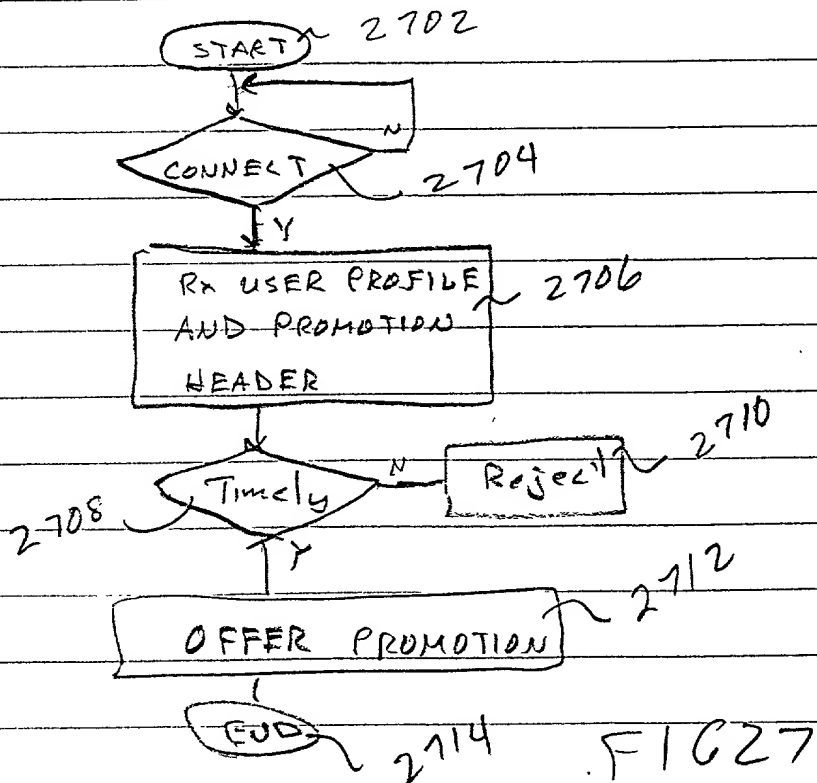 START 2702
N
CONNECT 2704
Y
Rx USER PROFILE
AND PROMOTION
HEADER
2706
Timely
N
Reject
2710
2708
Y
OFFER PROMOTION
2712
END 2714
FIG 27